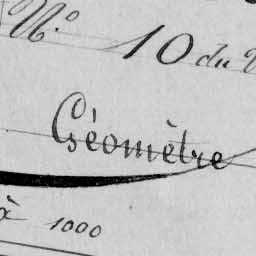 N.º 10 du
Géomètre
à 1000